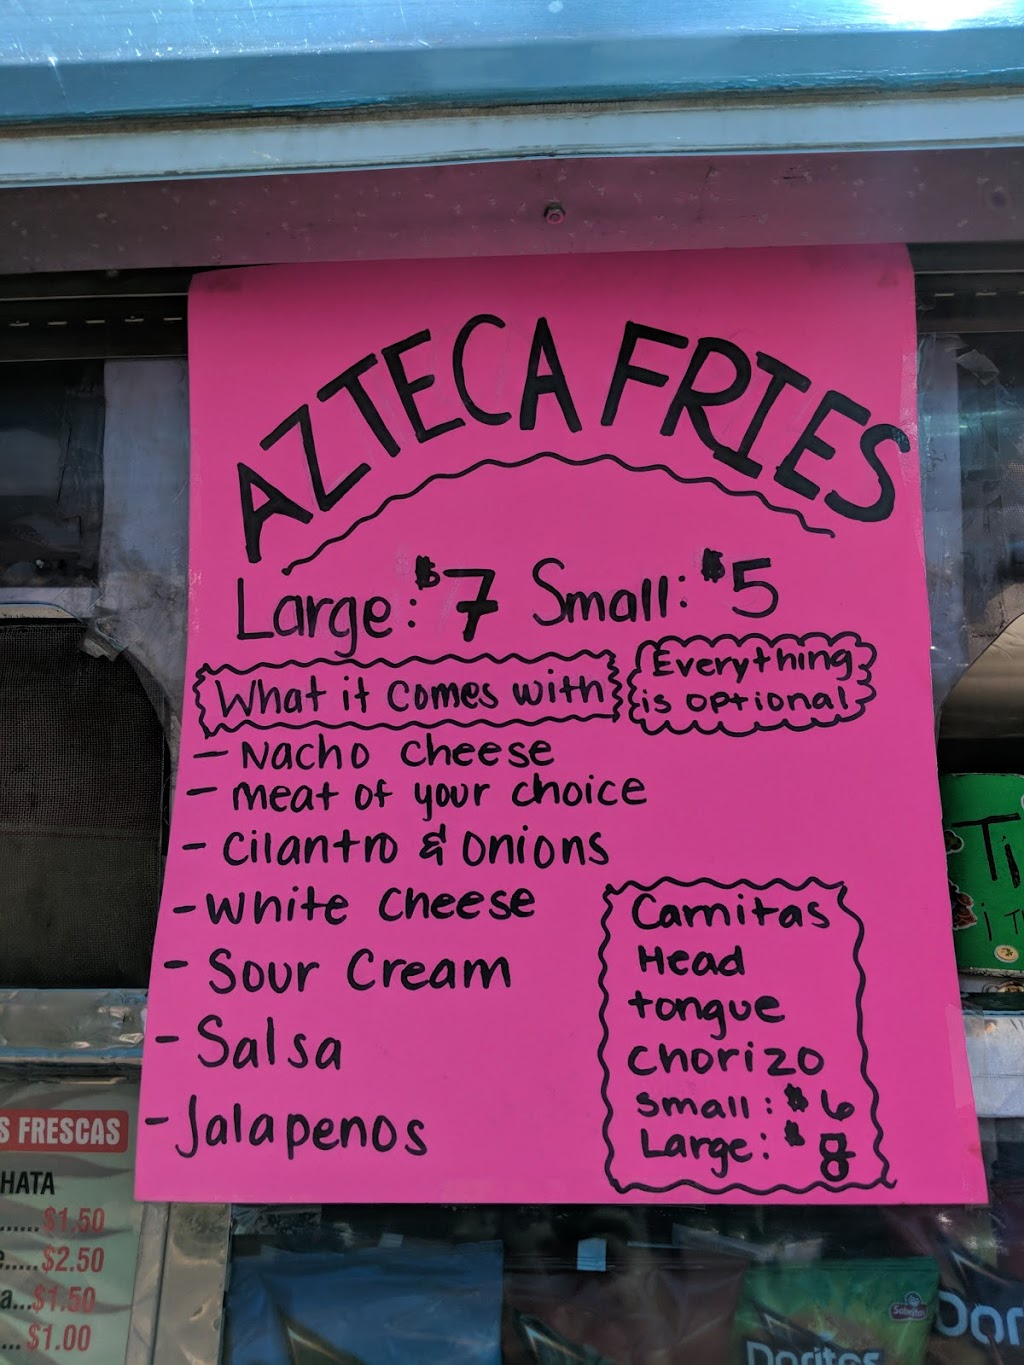 AZTECA FRIES
Large: $7 Small: $5
What it comes with
Everything
is optional
- Nacho cheese
- meat of your choice
- Cilantro & Onions
- White Cheese
- Sour Cream
- Salsa
- Jalapenos
Carnitas
Head
tongue
chorizo
small: $6
Large: $8
S FRESCAS
HATA
......$1.50
e.....$2.50
a...$1.50
... $1.00
Ti
¡ T
Sabritas
Doritos
Dor